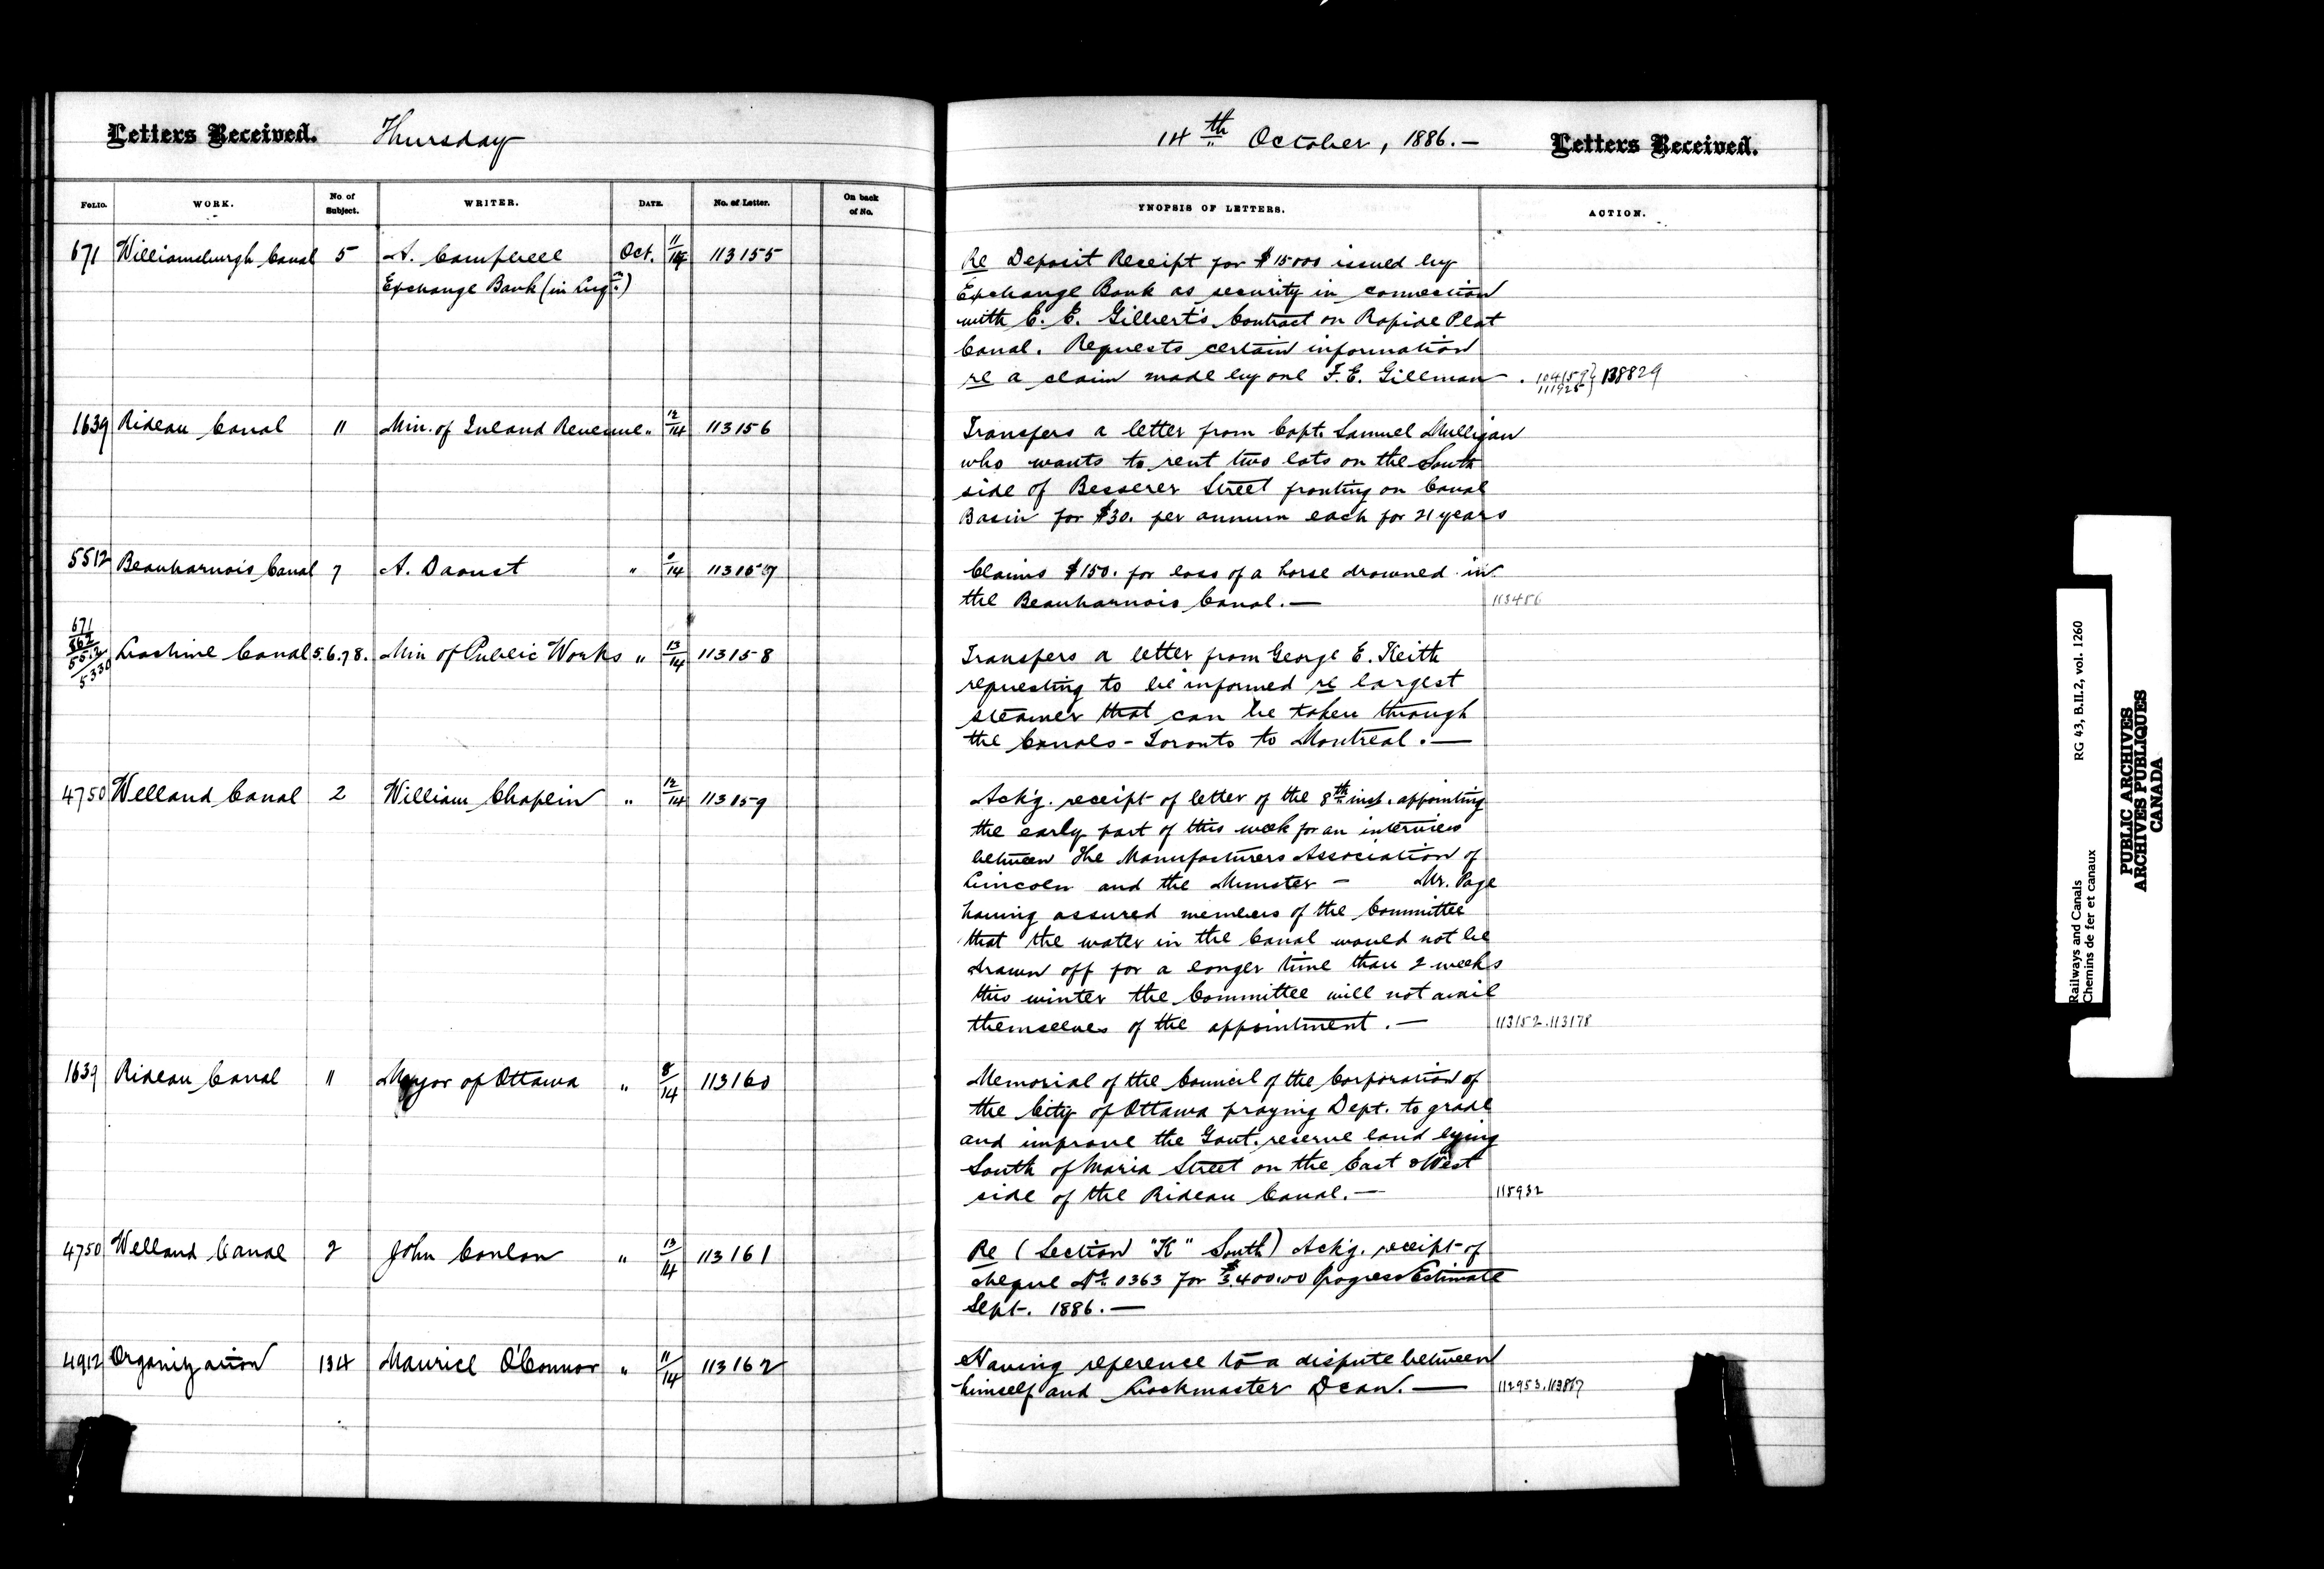 Letters Received. Thursday
14th October, 1886.— Letters Received.
FOLIO. WORK. No of Subject. WRITER. DATE. No. of Letter. On back of No. YNOPSIS OF LETTERS. ACTION.
671 Williamsburgh Canal 5 A. Campbell Oct. 11/14 113155
Exchange Bank (in Liqn.)
Re Deposit Receipt for $15000 issued by
Exchange Bank as security in connection
with E. E. Gilbert's Contract on Rapide Plat
Canal. Requests certain information
re a claim made by one F. E. Gillman. 104159 111926 } 138829
1639 Rideau Canal 11 Min. of Inland Revenue " 12/14 113156
Transfers a letter from Capt. Samuel Mulligan
who wants to rent two lots on the South
side of Besserer Street fronting on Canal
Basin for $30. per annum each for 21 years
5512 Beauharnois Canal 7 A. Daoust " /14 113157
Claims $150. for loss of a horse drowned in
the Beauharnois Canal.— 113456
671 862 5512 5330 Lachine Canal 5.6.7.8. Min of Public Works " 13/14 113158
Transfers a letter from George E. Keith
requesting to be informed re largest
steamer that can be taken through
the Canals - Toronto to Montreal.—
4750 Welland Canal 2 William Chaplin " 12/14 113159
Ack'g. receipt of letter of the 8th inst. appointing
the early part of this week for an interview
between the Manufacturers Association of
Lincoln and the Minister — Mr. Page
having assured members of the Committee
that the water in the Canal would not be
drawn off for a longer time than 2 weeks
this winter the Committee will not avail
themselves of the appointment.— 113152.113178
1639 Rideau Canal 11 Mayor of Ottawa " 8/14 113160
Memorial of the Council of the Corporation of
the City of Ottawa praying Dept. to grade
and improve the Govt. reserve land lying
South of Maria Street on the East & West
side of the Rideau Canal.— 115932
4750 Welland Canal 2 John Conlon " 13/14 113161
Re (Section "K" South) Ack'g. receipt of
cheque No. 0363 for $3,400.00 Progress Estimate
Sept. 1886.—
4912 Organization 134 Maurice O'Connor " 11/14 113162
Having reference to a dispute between
himself and Lockmaster Dean.— 112953.113887
Railways and Canals RG 43, B.II.2, vol. 1260
Chemins de fer et canaux
PUBLIC ARCHIVES
ARCHIVES PUBLIQUES
CANADA